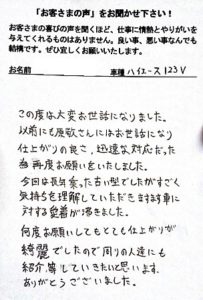 「お客さまの声」をお聞かせ下さい！
お客さまの喜びの声を聞くほど、仕事に情熱とやりがいを
与えてくれるものはありません。良い事、悪い事なんでも
結構です。ぜひ宜しくお願いいたします。
お名前 車種 ハイエース 123V
この度は大変お世話になりました。
以前にも原敬さんにはお世話になり
仕上がりの良さ、迅速な対応だった
為 再度お願いをいたしました。
今回は長年乗った古い型でしたがすごく
気持ちを理解していただきますます車に
対する愛着が湧きました。
何度お願いしてもとても仕上がりが
綺麗でしたので周りの人達にも
紹介等していきたいと思います。
ありがとうございました。